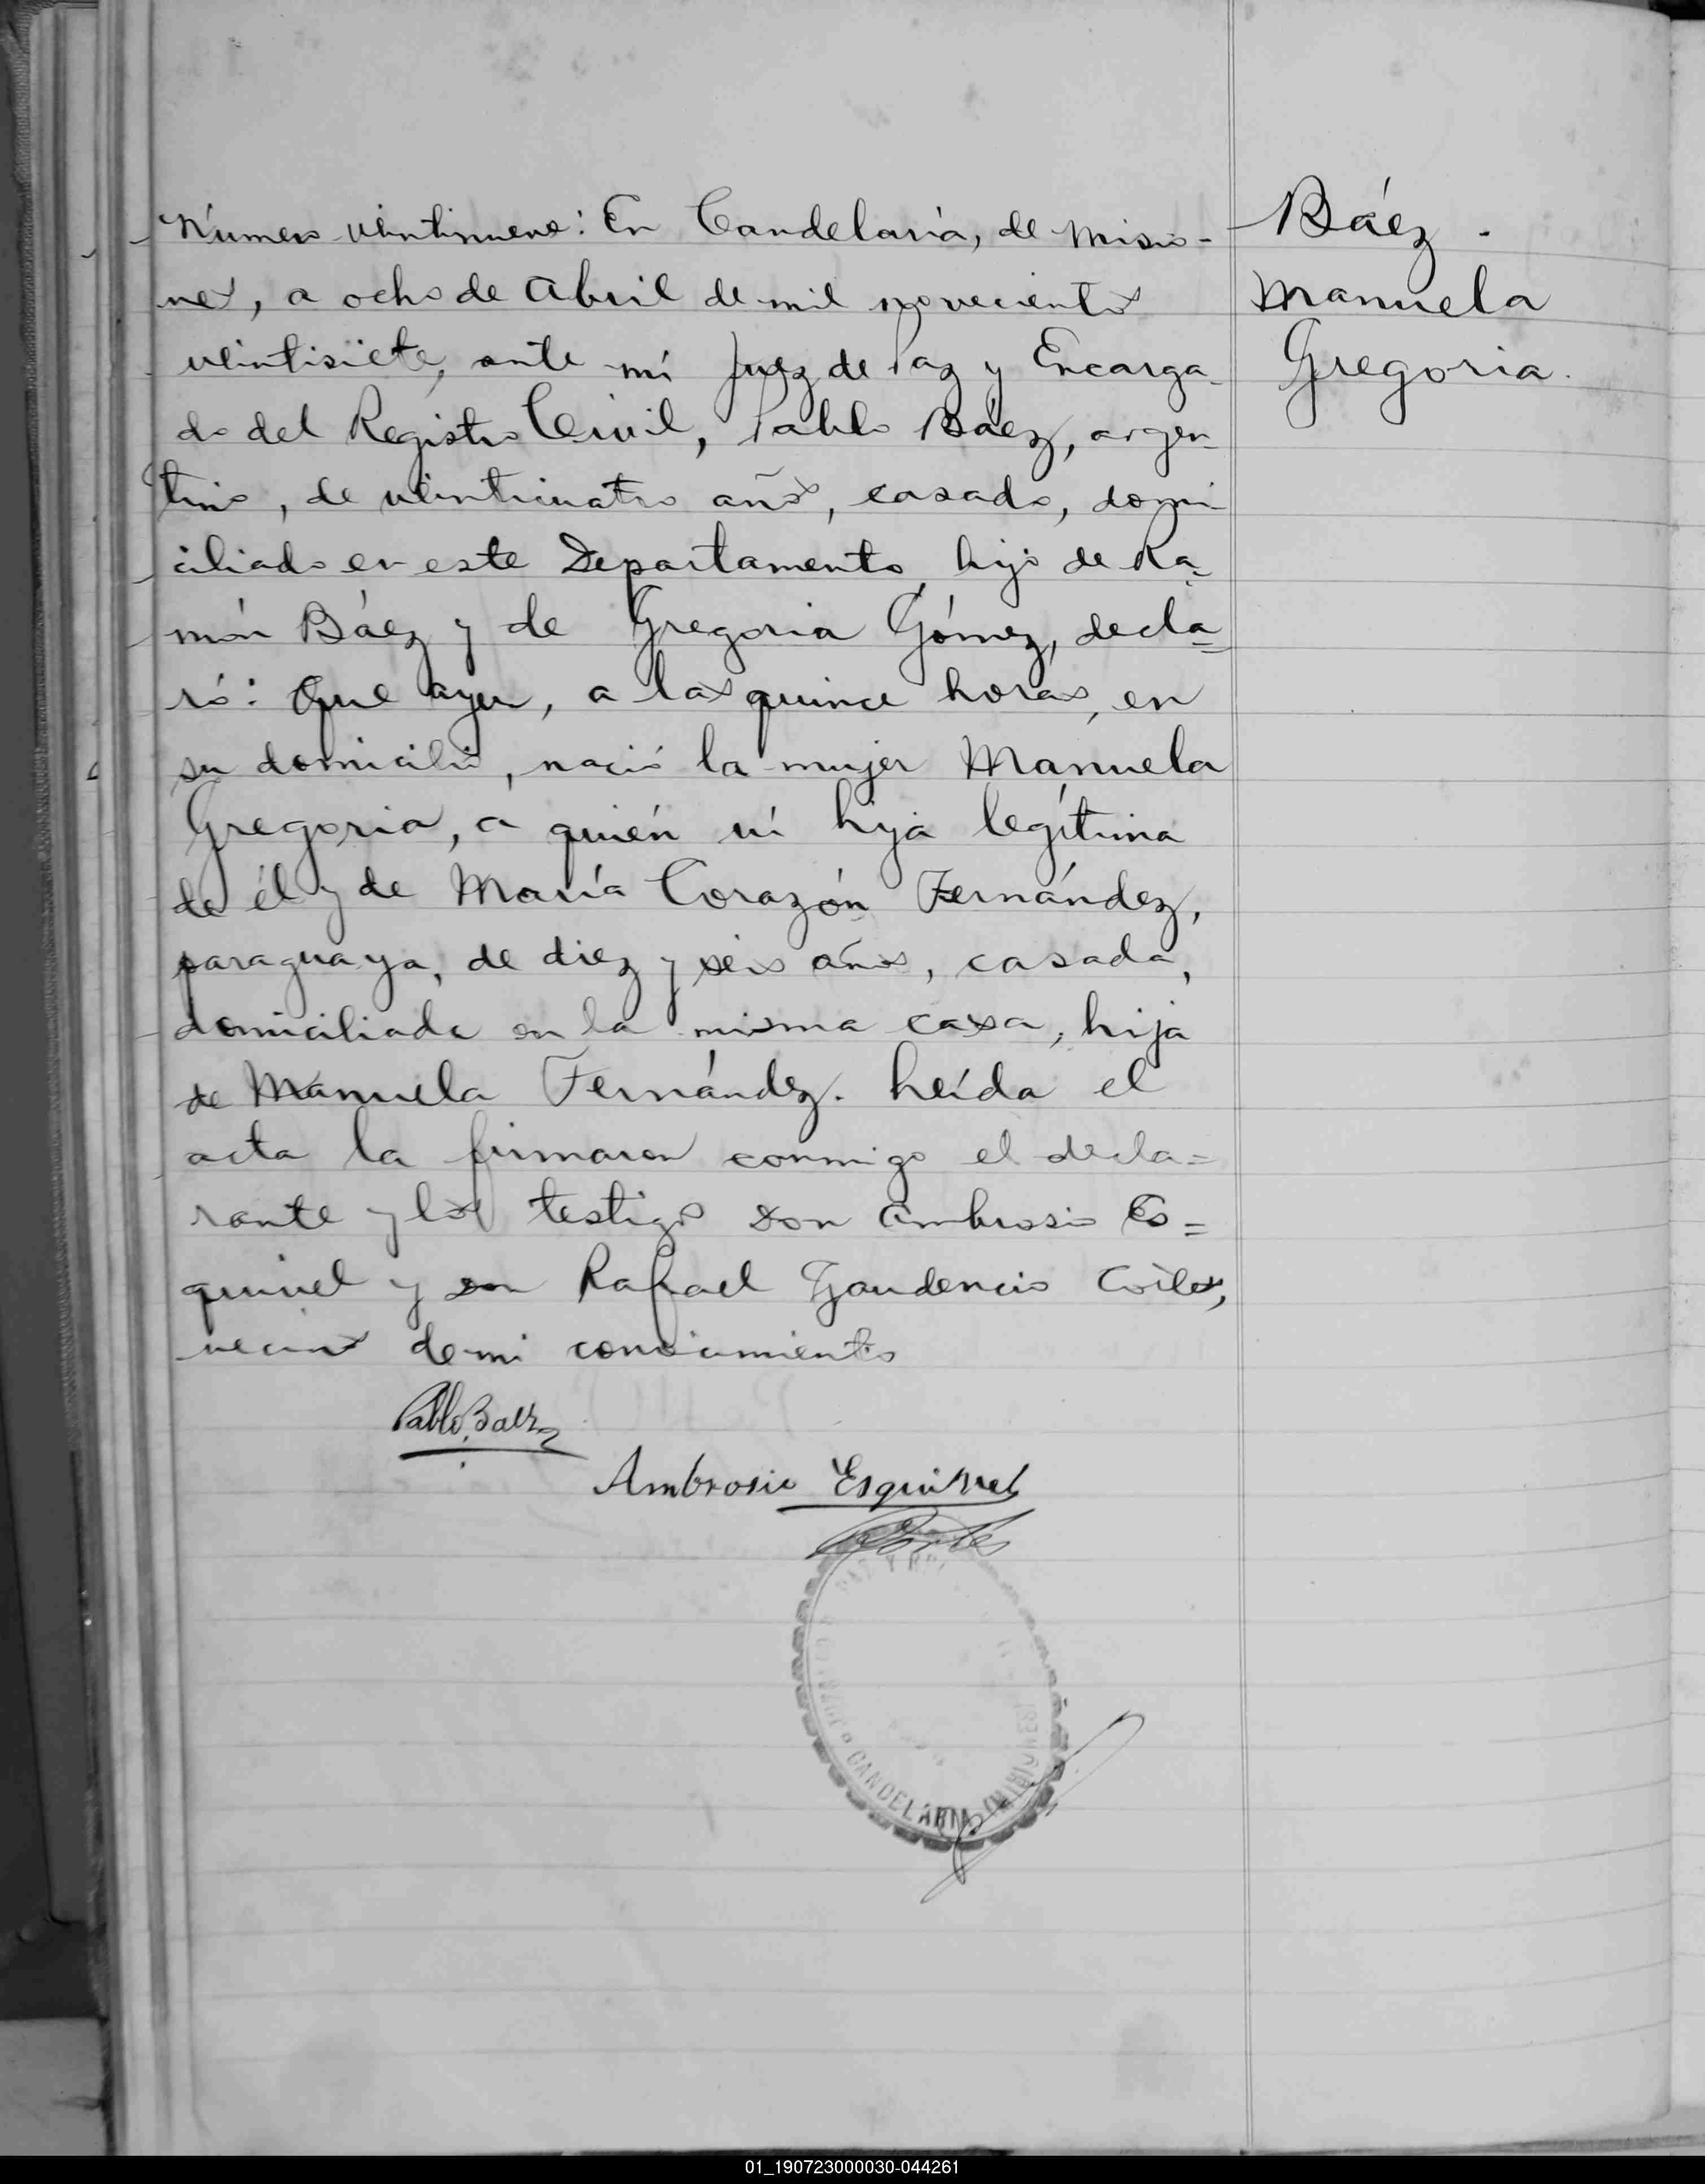 Báez.
Manuela
Gregoria.
Número veintinueve: En Candelaria, de Misio-
nes, a ocho de Abril de mil novecientos
veintisiete, ante mí Juez de Paz y Encarga-
do del Registro Civil, Pablo Báez, argen-
tino, de veinticuatro años, casado, domi-
ciliado en este Departamento, hijo de Ra-
món Báez y de Gregoria Gómez, decla-
ró: Que ayer, a las quince horas, en
su domicilio, nació la mujer Manuela
Gregoria, a quién ví hija legítima
de él y de María Corazón Fernández,
paraguaya, de diez y seis años, casada,
domiciliada en la misma casa, hija
de Manuela Fernández. Leída el
acta la firmaron conmigo el decla=
rante y los testigos don Ambrosio Es=
quivel y don Rafael Gaudencio Cortes,
vecinos de mi conocimiento
Pablo Baez
Ambrosio Esquivel
Cortes
CANDELARIA (MISIONES)
01_190723000030-044261